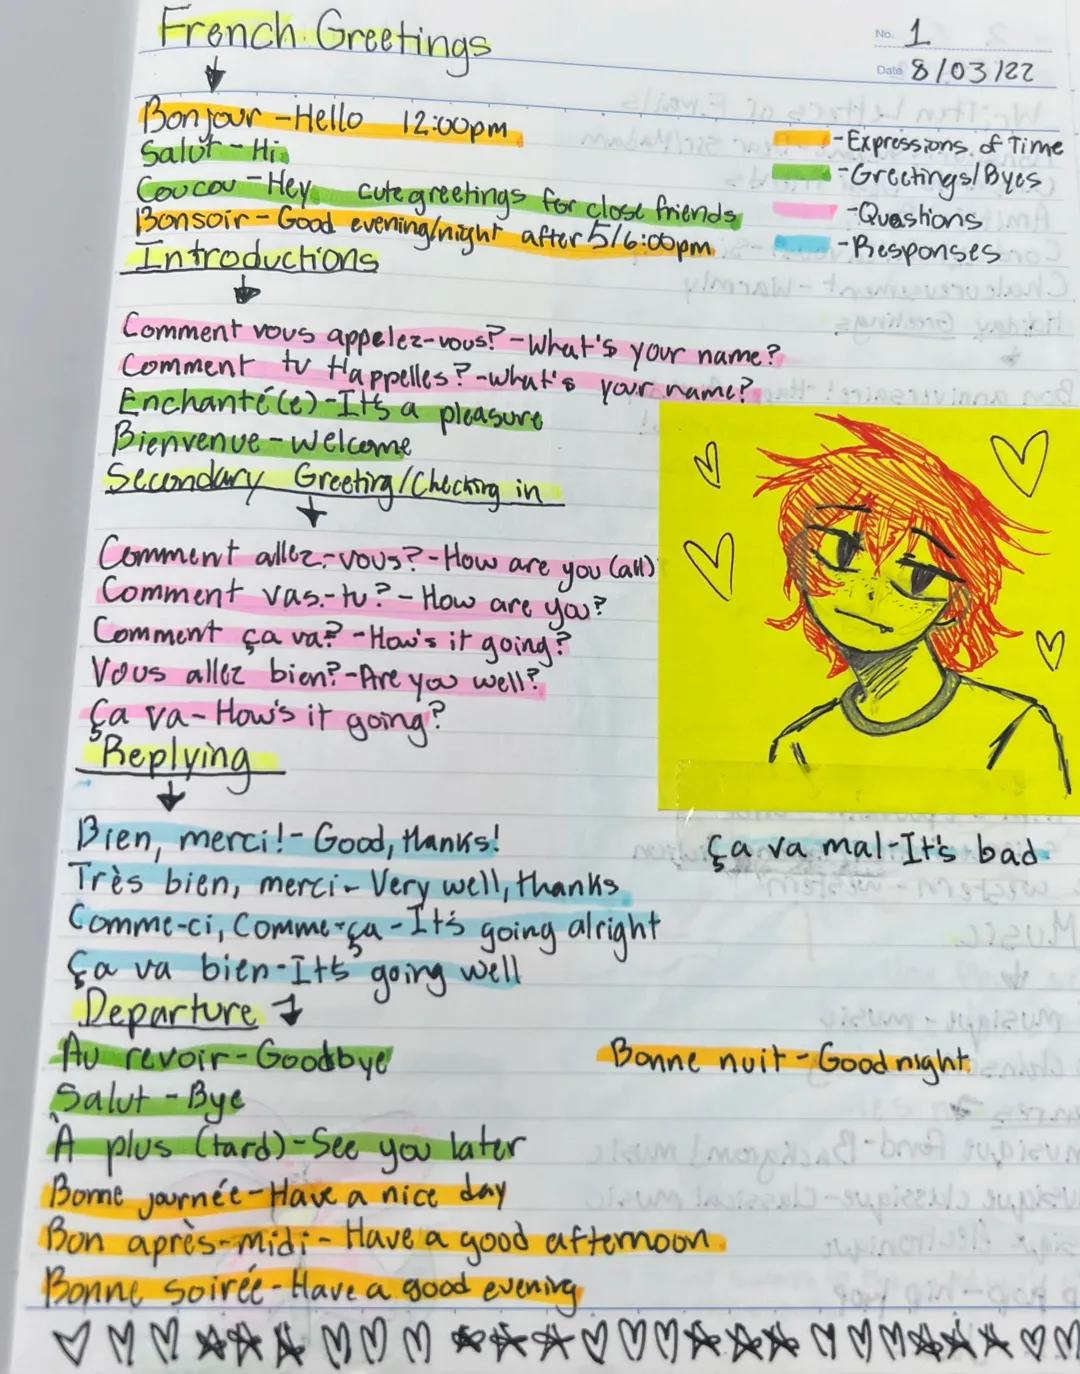 French Greetings
No. 1
Date 8/03/22
Bonjour - Hello 12:00pm
Salut - Hi
Coucou - Hey cute greetings for close friends
Bonsoir - Good evening/night after 5/6:00pm
- Expressions of Time
- Greetings/Byes
- Quashions
- Responses
Introductions
Comment vous appelez-vous? - What's your name?
Comment tu t'appelles? - what's your name?
Enchanté(e) - It's a pleasure
Bienvenue - Welcome
Secondary Greeting/Checking in
Comment allez-vous? - How are you (all)
Comment vas-tu? - How are you?
Comment ça va? - How's it going?
Vous allez bien? - Are you well?
Ça va - How's it going?
Replying
Bien, merci! - Good, thanks!
Très bien, merci - Very well, thanks
Comme-ci, Comme-ça - It's going alright
Ça va bien - It's going well
ça va mal - It's bad
Departure
Au revoir - Goodbye
Bonne nuit - Good night
Salut - Bye
À plus (tard) - See you later
Bonne journée - Have a nice day
Bon après-midi - Have a good afternoon
Bonne soirée - Have a good evening